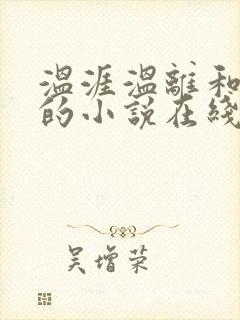 温涯温離和
的小说在綫
吴增荣